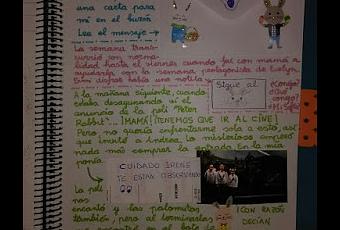 una carta para
mí en el buzón
Lee el mensaje →
La semana trans-
currió con norma-
lidad hasta el viernes cuando fui con mamá a
ayudarla con la semana protagonista de Evelyn.
Sin dejar había una notita
Sigue al
A la mañana siguiente, cuando
estaba desayunando vi el
anuncio de la peli "Peter
Rabbit"... ¡MAMÁ! ¡TENEMOS QUE IR AL CINE!
Pero no quería enfrentarme sola a esto, así
que invité a Andrea. La misteriosa empezó
nada más comprar la entrada. En la mía
ponía →
CUIDADO IRENE
TE ESTÁN OBSERVANDO
La peli
nos
encantó y las palomitas
también, pero al terminarlas
¡CON RAZÓN
DECÍAN